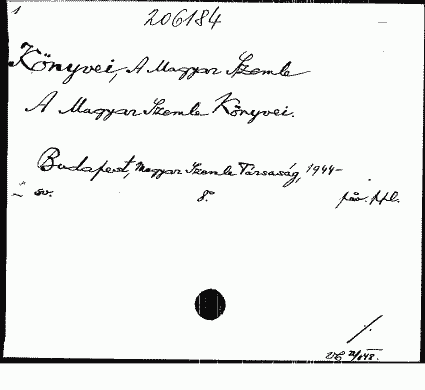 1 206184
Könyvei, A Magyar Szemle
A Magyar Szemle Könyvei.
Budapest, Magyar Szemle Társaság, 1944-
sv. 8.